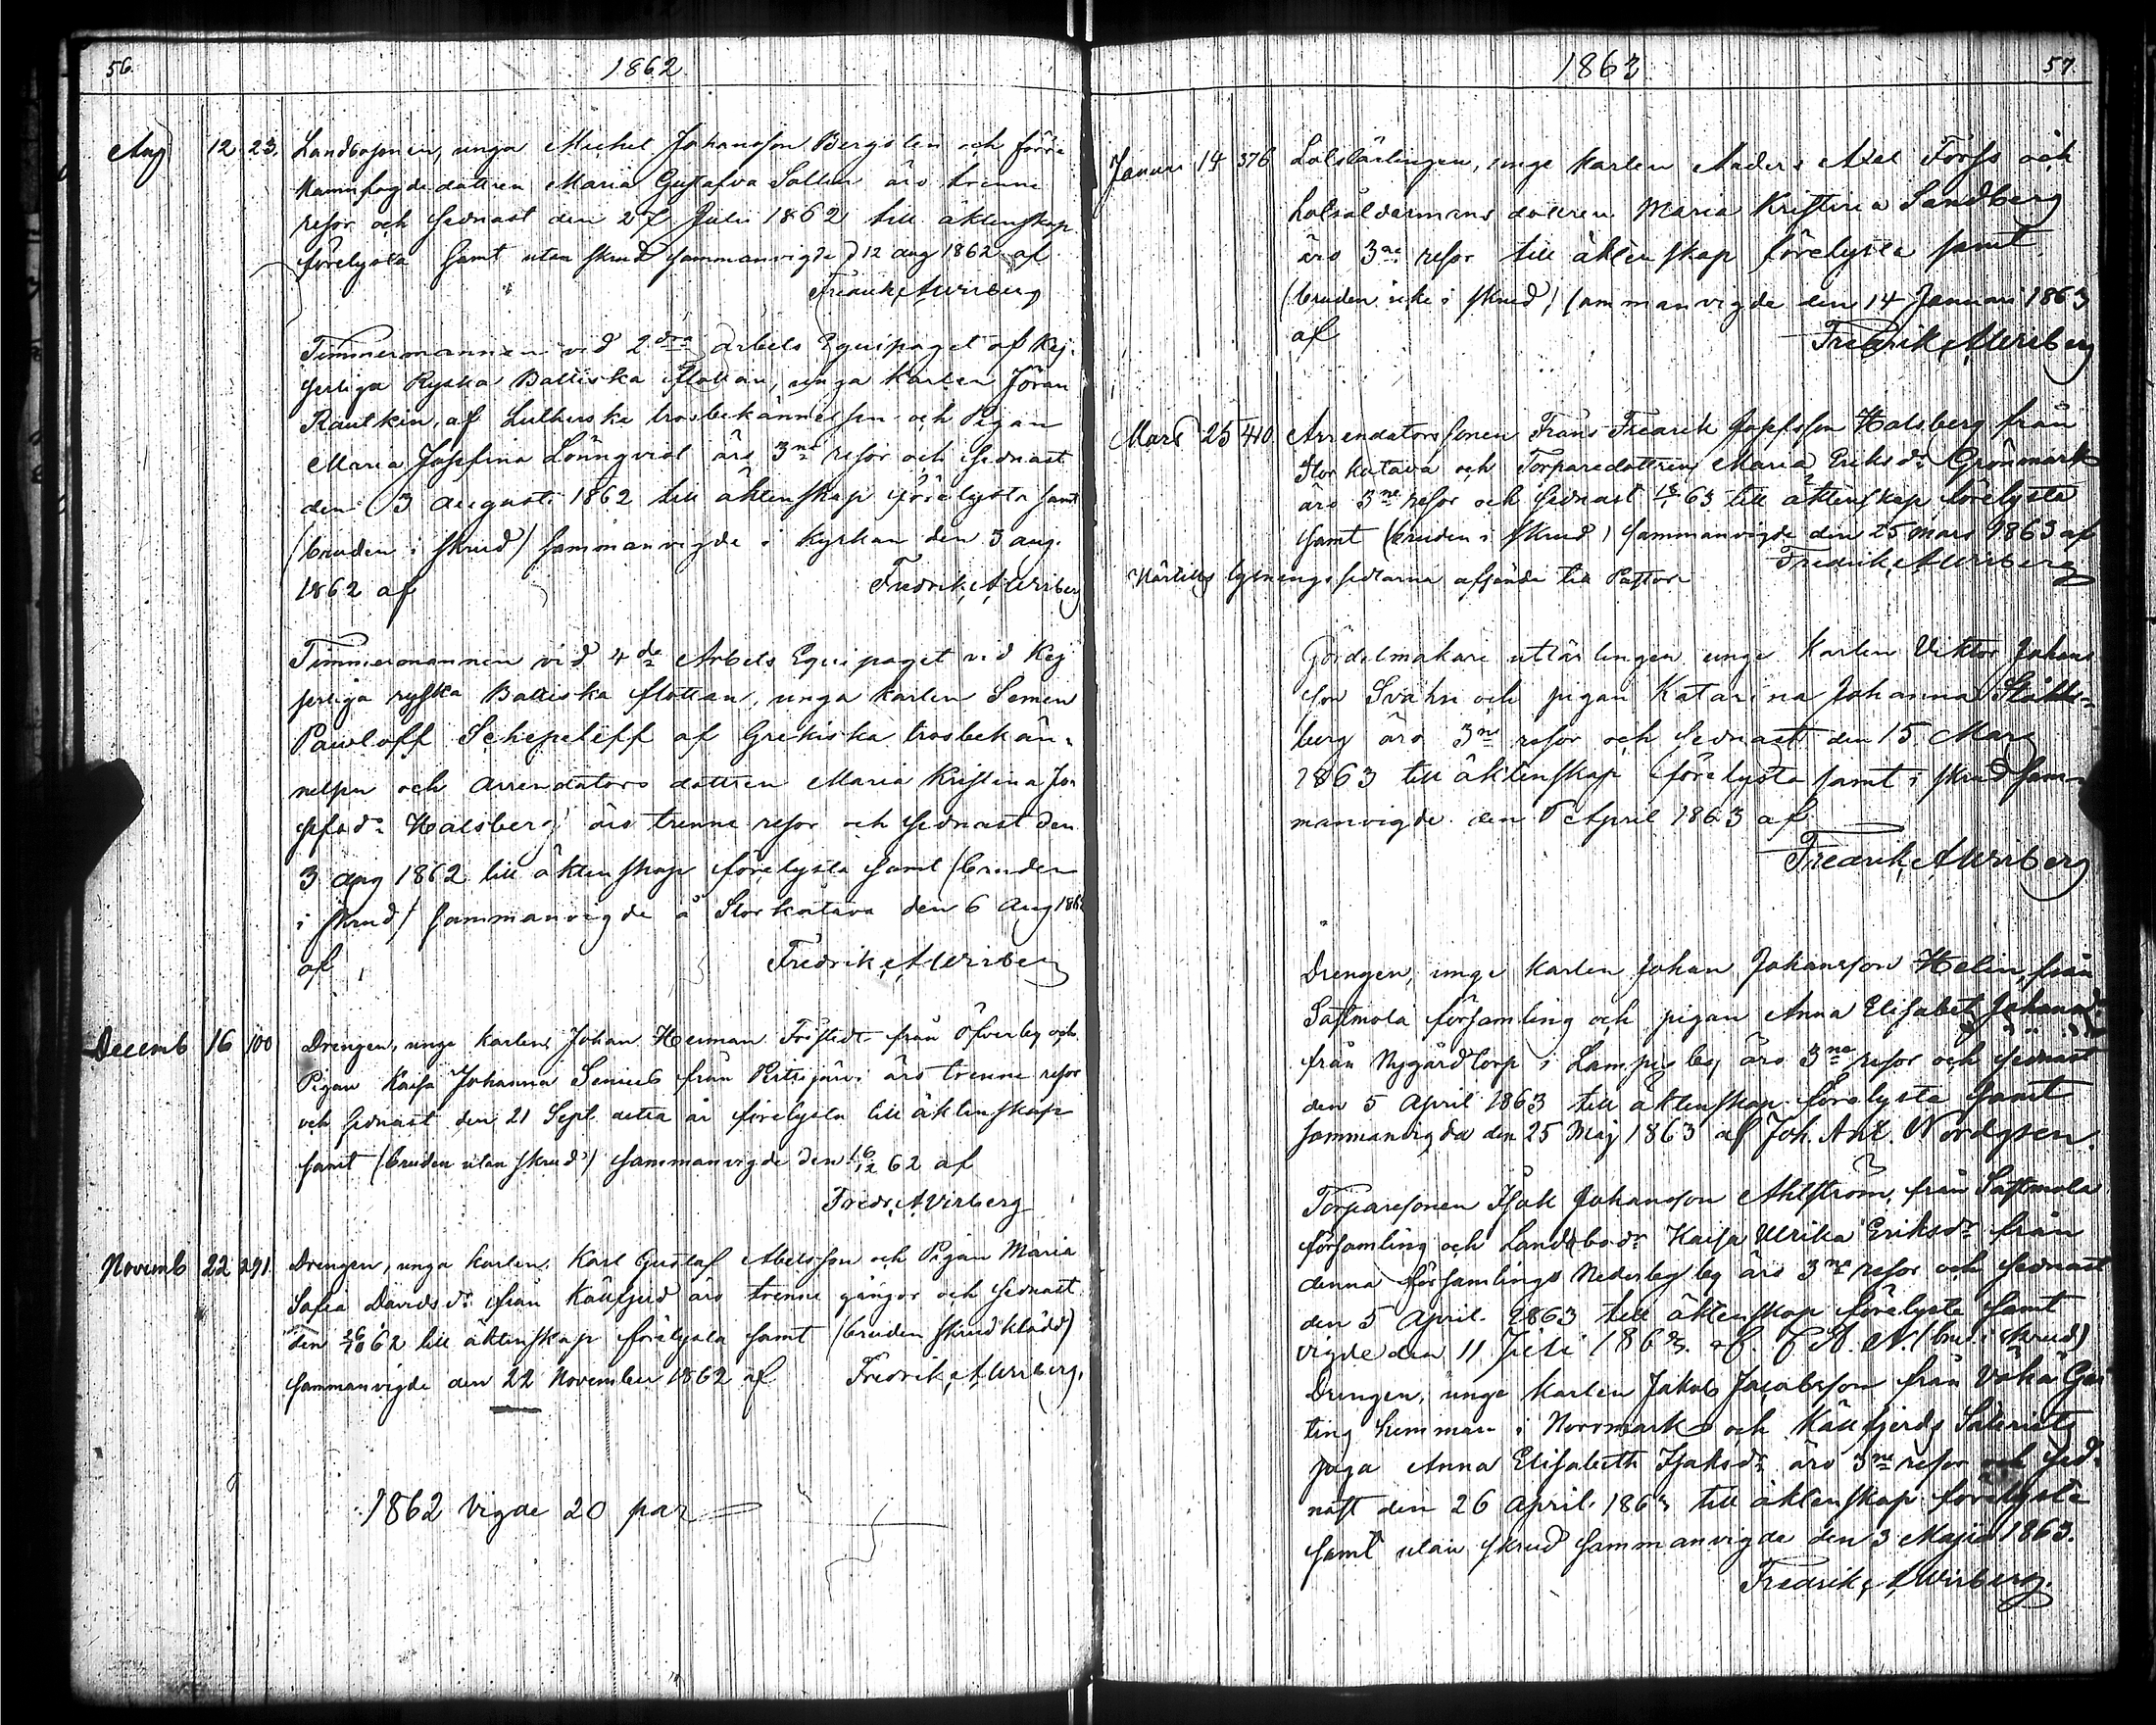 56. 1862
Aug 12 23. Landbosonen, unga Michel Johansson Bergsten och förre
Kamnfogdedottren Maria Gustafva Sallin äro trenne
resor och sednast den 27 Juli 1862 till äktenskap
förelysta samt utan skrud sammanvigde d 12 aug 1862 af
Fredrik A Wirberg
Timmermannen vid 2dra Arbets Equipaget af Kej-
serliga Ryska Baltiska flottan, unga Karlen Jöran
Rautkin, af Lutherska trosbekännelsen och Pigan
Maria Josefina Lönnqvist äro 3ne resor och sednast
den 3 augusti 1862 till äktenskap förelysta samt
(bruden i skrud) sammanvigde i kyrkan den 3 aug.
1862 af Fredrik A Wirberg
Timmermannen vid 4de Arbets Equipaget vid Kej
serliga ryska Baltiska flottan, unga karlen Semen
Pawloff Schepeleff af Grekiska trosbekän-
nelsen och arrendators dottren Maria Kristina Jo-
sefsdr Halsberg äro trenne resor och sednast den
3 aug 1862 till äktenskap förelysta samt (bruden
i skrud) sammanvigde å Storkatava den 6 Aug 1862
af Fredrik A Wirberg
Decemb 16 100 Drengen, unge karlen Johan Herman Fristedt från Öfverby och
Pigan Kajsa Johanna Seniub från Pertsjärvi äro trenne resor
och sednast den 21 Sept detta år förelysta till äktenskap
samt (bruden utan skrud) sammanvigde den 16/12 62 af
Fredr. A Virberg
Novemb 22 291. Drengen, unga karlen Karl Gustaf Abelsson och Pigan Maria
Safia Davidsdr från Källfjerd äro trenne gångor och sednast
den 26/10 62 till äktenskap förelysta samt (bruden skrudklädd)
sammanvigde den 22 November 1862 af Fredrik A Wirberg.
1862 Vigde 20 par
1863 57.
Januari 14 376 Lotslärlingen, unge karlen Anders Axel Forss och
Lotsåldermans dottren Maria Kristina Sandberg
äro 3ne resor till äktenskap förelysta samt
(bruden icke i skrud) sammanvigde den 14 Januari 1863
af Fredrik A Wirberg
Mars 25 410. Arrendatorssonen Frans Fredrik Josefsson Halsberg från
Stor Katava och Torparedottren Maria Eriksdr Grönmark
äro 3ne resor och sednast 63 till äktenskap förelysta
samt (bruden i skrud) sammanvigde den 25 mars 1863 af
lysningssedlarna afsände till Pastor Fredrik A Wirberg
Gördelmakare utlärlingen unge karlen Viktor Johans
son Svahn och pigan Katarina Johanna
berg äro 3ne resor och sednast den 15 Mars
1863 till äktenskap förelysta samt i skrud sam-
manvigde den 6 April 1863 af
Fredrik A Wirberg
Drengen, unge karlen Johan Johansson Helin, från
Sastmola församling och pigan Anna Elisabet Johansdr
från Nygårdtorp i Lampis by äro 3ne resor och sednast
den 5 April 1863 till äktenskap förelysta samt
sammanvigda den 25 Maj 1863 af Joh. Ant. Nordgren.
Torparesonen Isak Johansson Ahlström, från Sastmola
församling och Landbodr Kajsa Ulrika Eriksdr från
denna församlings Nederby by äro 3ne resor och sednast
den 5 April 1863 till äktenskap förelysta samt
vigde den 11 Juli 1863. af. J A. N. (brud i skrud)
Drengen, unge karlen Jakob Jacobsson från Vähä Gäs
ting hemman i Norrmark och Källfjerds Säteriets
piga Anna Elisabeth Isaksdr äro 3ne resor och sed-
nast den 26 April 1863 till äktenskap förelyste
samt utan skrud sammanvigde den 3 Maji 1863.
Fredrik A Wirberg.